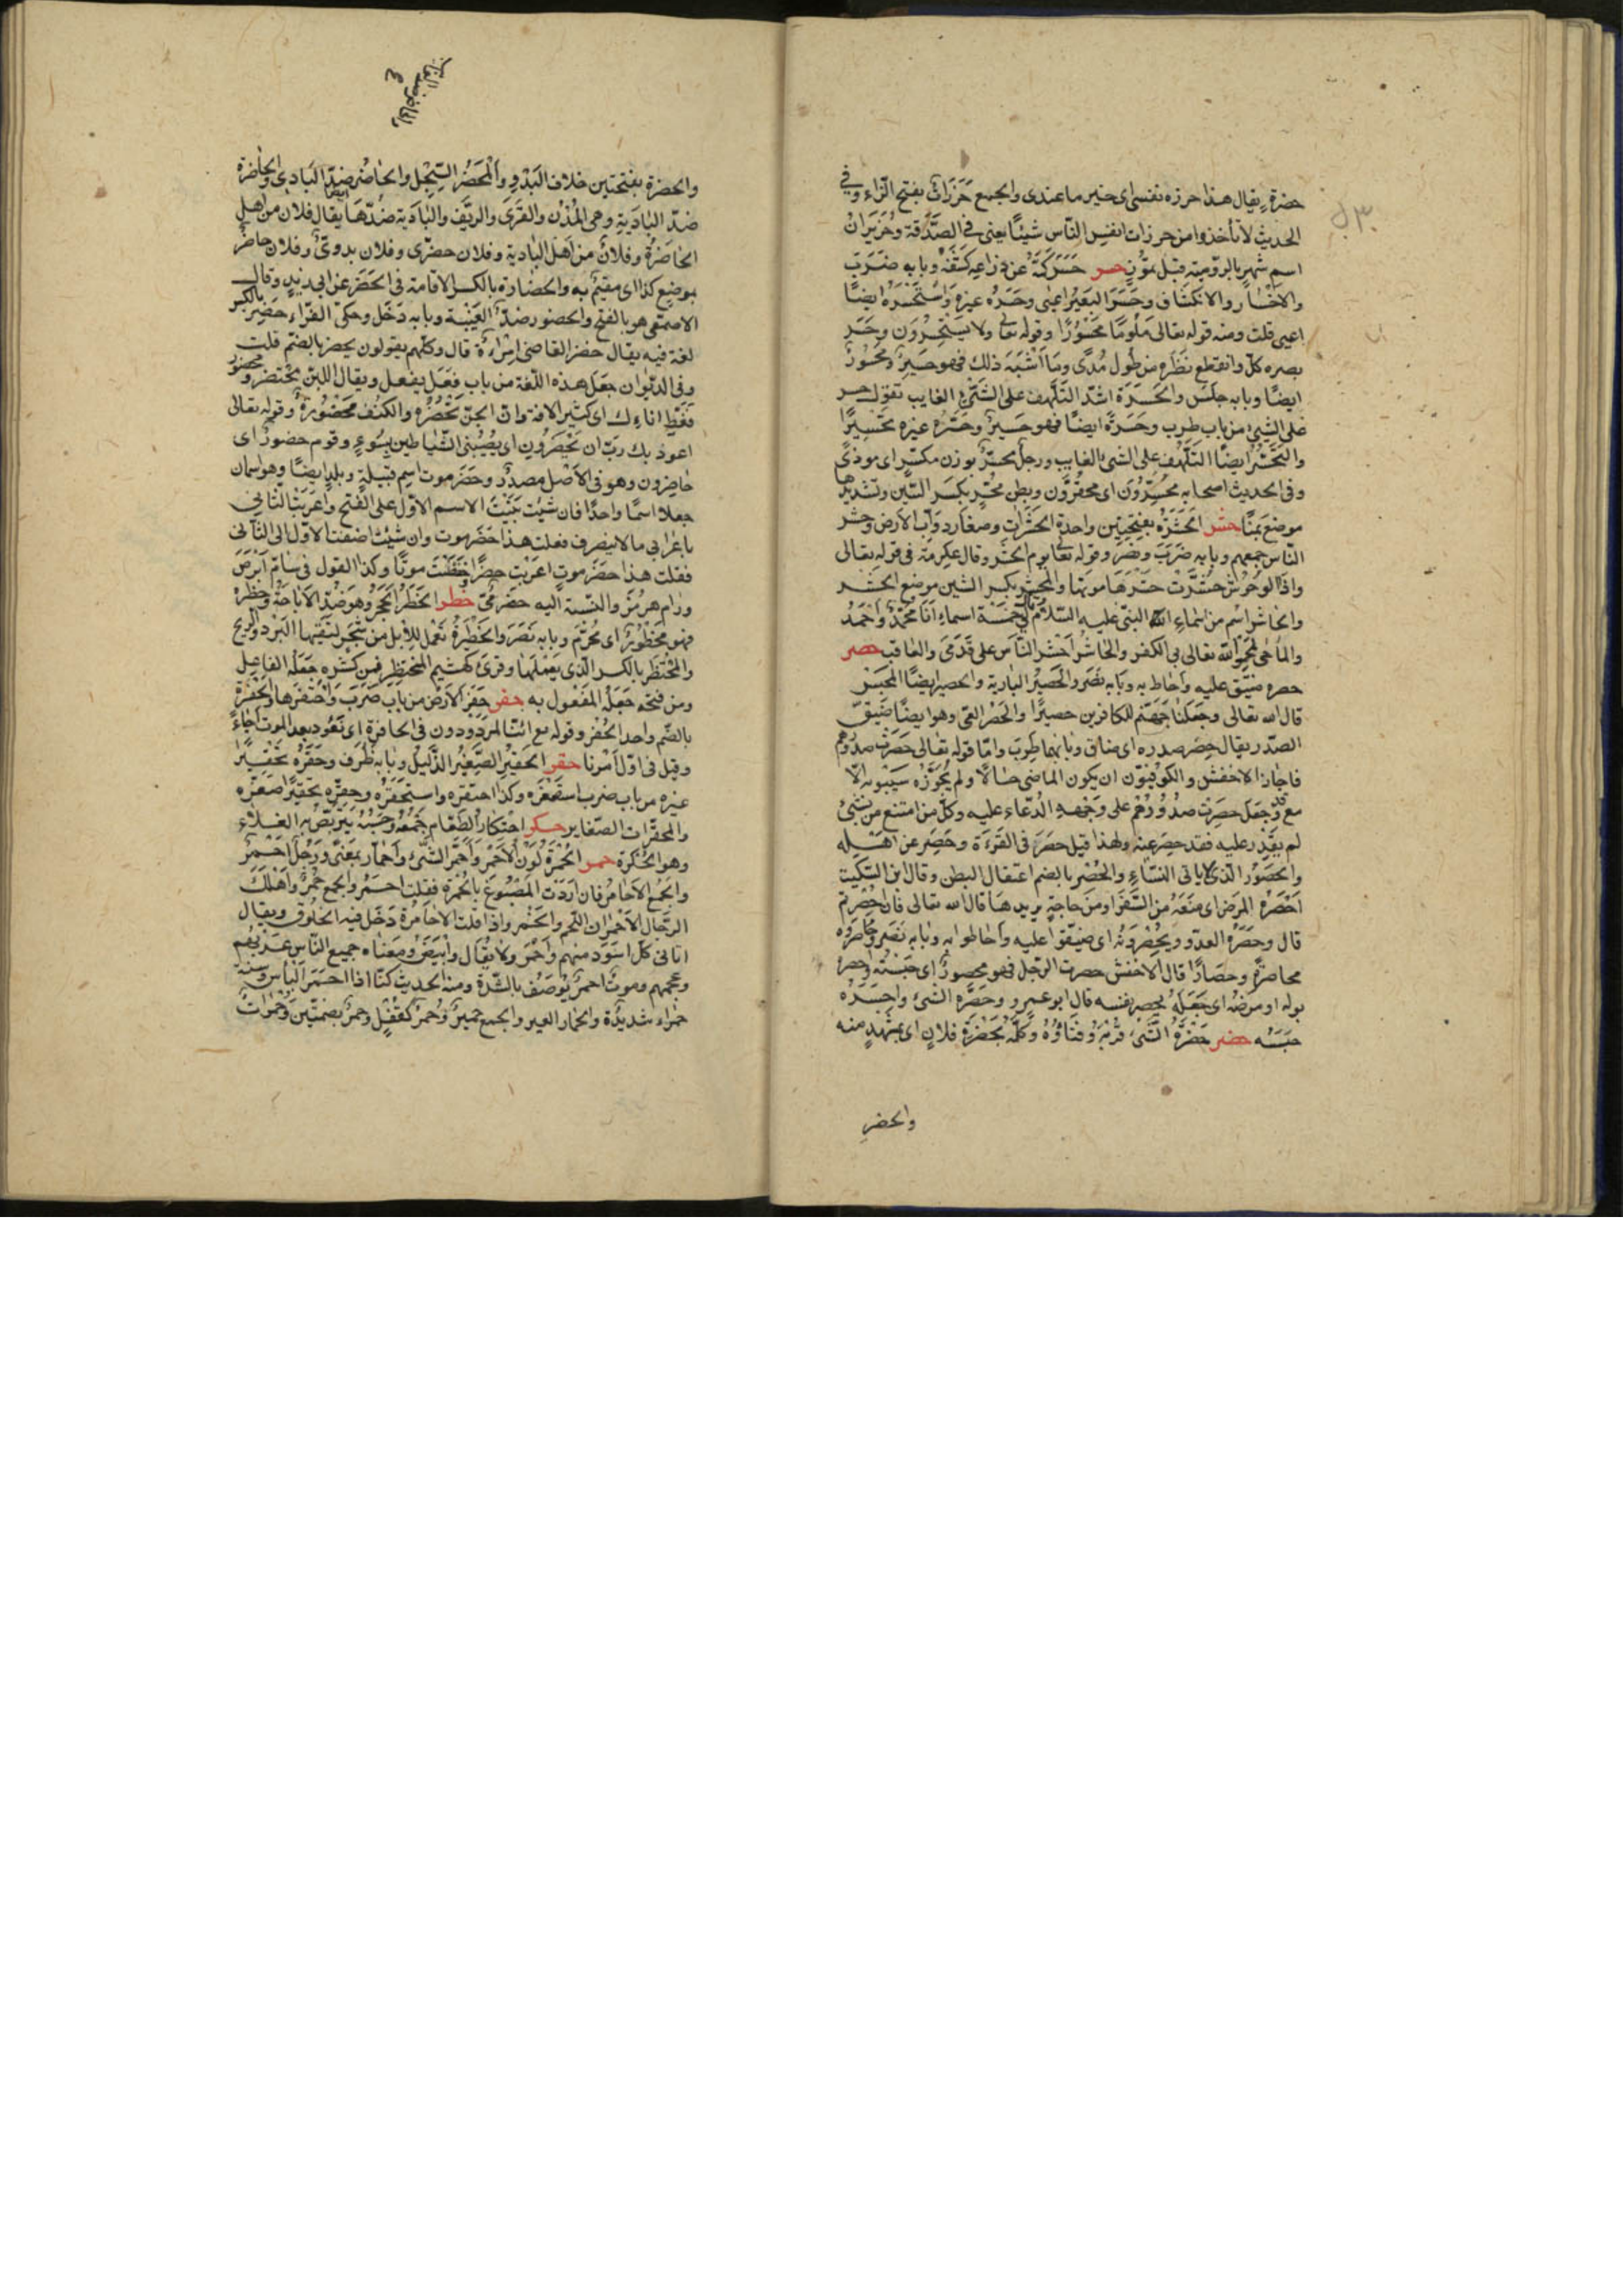 حضرة يقال هذا حرزة نفسي اى خير ما عندى والجمع حَزَرَاتٌ بفتح الزاء وفى
الحديث لا تأخذوا من حزرات انفس النّاس شيئًا يعنى فى الصَّدَقة وحُزَيرَانُ
اسم شهر بالرّوميّة قبل تمّوز حسر حَسَرَ كمّهُ عن ذراعه كَشَفَهُ وبابه ضَرَبَ
والانحسار والانكشاف وحَسَرَ البَعيرُ اعيى وحَسَرَهُ غيره واسْتَحْسَرَ ايضًا
اعيى قلت ومنه قوله تعالى مَلُومًا مَحْسُورًا وقوله تعالى ولا يَسْتَحْسِرُون وحَسَر
بصره كلّ وانقطع نَظَره من طُول مُدًى وما أشْبَهَ ذلك فهو حَسِيرٌ ومحْسُورٌ
ايضًا وبابه جلس والحَسْرَة اشدّ التَّلَهُّف على الشئ الغايب تقول حسر
على الشئ من باب طرب وحسرةً ايضًا فهو حَسيرٌ وحسّره غيره تَحْسِيرًا
والتحسّر ايضًا التلهّف على الشئ الغايب ورجل محسّر بوزن مكسّر اى موذًى
وفى الحديث اصحابه محسّرون اى محقّرون وبطن محسّر بكسر السّين وتشديدها
موضع بمنًا حشر الحَشَرَة بفتحتين واحدة الحَشَرات وصغار دوابّ الارض وحشر
النّاس جمعهم وبابه ضَرَبَ ونَصَرَ وقوله تعالى يوم الحشر وقال عكرمة فى قوله تعالى
واذا الوُحُوش حُشِرَتْ حَشْرُهَا موتها والمحشر بكسر الشين موضع الحشر
والحاشر اسم من اسماء النبىّ عليه السّلام لى خَمْسَة اسماء أنَا مُحَمَّد وأحْمَدُ
والماحى يمحو الله تعالى بى الكفر والحاشر احشر النّاس على قَدَمَىَّ والعاقب حصر
حصره ضيّق عليه واحاط به وبابه نَصَر والحصير البارية والحصير ايضًا المحبس
قال الله تعالى وجعَلنا جهنّم للكافرين حصيرًا والحصر العىّ وهو ايضًا ضيق
الصّدر يقال حَصِر صدره اى ضاق وبابهما طرب وامّا قوله تعالى حَصِرَتْ صدُورُهم
فاجاز الاخفش والكوفيّون ان يكون الماضى حالًا ولم يُجَوّزه سيبويه الّا
مع قد وجعَل حَصِرَت صدورُهُم على وجْهِهِ الدّعاء عليه وكلّ من امتنع من شئ
لم يقدر عليه فقد حصر عنه ولهذا قيل حصرَ فى القرءة وحَصِر عن اهله
والحصُور الذى لا ياتى النّساء والحُصْر بالضم اعتقال البطن وقال ابن السّكّيت
احْصَرَهُ المرض اى منَعَهُ من السَّفَر او من حاجةٍ يريدها قال الله تعالى فان احْصرتم
قال وحَصَرَهُ العدوّ ويحْصِرُونَهُ اى ضيّقوا عليه واحاطوا به وبابه نَصَر وحاصَرُوه
محاصرةً وحِصارًا قال الاخفش حصرت الرّجل فهو محصور اى حبسته واحصره
بوله او مرضه اى جَعَلَهُ يحصر نفسه قال ابو عمرو وحصَرَهُ الشئ واحصَرَه
حَبَسَه حضر حَضْرَةُ الشئ قُرْبُه وفِنَاؤُهُ وكلَّمه بحَضْرَةِ فلان اى بمشهد منه
والحضر
والحضرة بفتحتين خلاف البَدْوِ والمَحْضَرُ السِّجِلّ والحاضرُ ضدّ البَادى والحاضرة
ضدّ البادية وهى المُدُنُ والقُرَى والرِيفُ والبَادية ضدّها يقال فلان من اهل
الحاضرة وفلان من اهل البادية وفلان حضرى وفلان بدوىّ وفلان حاضر
بموضع كذا اى مقيم به والحِضَارة بالكسر الاقامة فى الحَضَر عن ابى زيد وقال
الاصمعى هو بالفتح والحضور ضدّ الغَيْبَة وبابه دَخَل وحكى الفرّاء حَضِرَ بالكسر
لغة فيه يقال حضر القاضى امْرَأة قال وكلّهم يقولون يحضر بالضمّ قلت
وفى الديوان جعَل هذه اللّغة من باب فعَل يفعل ويقال اللبن محتضر ومحضور
فغَطِّ اناءك اى كثير الآفة وانّ الجنّ تَحْضُرُهُ والكنُف مَحْضُورة وقوله تعالى
اعوذ بك ربّ ان يَحْضُرُونِ اى يُصيْبَنى الشّياطين بسُوءٍ وقوم حضورٌ اى
حاضرون وهو فى الاصْل مصدرٌ وحَضْرَموت اسم قبيلة وبلد ايضًا وهو اسمان
جعلا اسمًا واحدًا فان شئت بَنَيْتَ الاسم الاوّل على الفتح واعربتَ الثّانى
باعراب ما لا ينصرف فقلت هذا حَضْرَموت وان شئت اضفت الاوّل الى الثّانى
فقلت هذا حضْرُ موتٍ اعربت حضرًا وخفضت موتًا وكذا القول فى سَامّ ابرَصَ
ورام هرمز والنسبة اليه حضرمىّ حظر الحَظْر الحَجْر وهو ضدّ الاباحة وحظره
فهو محظُورٌ اى مُحرّم وبابه نَصَر والحَظيْرةُ تعمل للابل من شجر لتقيها البَرْد والريح
والمحتظِر بالكسر الّذى يَعْمَلها وقرئ كهشيم المحتظِر فمن كسَرَه جعَلَه الفاعل
ومن فتحه جَعَله المفعول به حفر حَفَر الارض من باب ضَرَبَ واحتفرها والحُفْرة
بالضّم واحد الحُفَر وقوله تع ائنّا لمردودون فى الحافرة اى نَعُود بعد الموت احْيَاءً
وقيل فى اوّل أمْرنا حقر الحَقيْر الصّغيْر الذّليل وبابه ظرُف وحَقَرَهُ تحْقيرًا
غيره من باب ضرب استصغره وكذا احتقره واستحقره وحقّره تحقيرًا صَغّره
والمحقّرات الصّغاير حكر احتكار الطَّعَام جَمْعُهُ وحَبْسُهُ يتربّصُ به الغلاءُ
وهو الحُكْرَة حمر الحُمْرَةُ لَوْنُ الاحْمَر وأحْمَرَّ الشّئ واحْمارّ بمعنًى ورَجُلٌ احْمَرُ
والجَمْع الاحامِرُ فان اردت المَصْبُوغ بالحُمْرَة فقلت احْمَرُ والجمع حُمْرٌ وأهْلَكَ
الرّجال الاحْمَران اللّحم والخَمْر واذا قلت الاحامِرَة دَخَل فيه الخَلُوق ويقال
اتانى كلّ اسْوَدَ منهم واحْمَر ولا يُقال وابْيَضَ ومعناه جميع النّاس عَرَبُهُم
وعجمهم وموتٌ احمَرُ يُوصَفُ بالشّدّة ومنه الحديث كنّا اذا احْمَرّ البأس وسنة
حمراء شديدة والحمار العير والجمع حميرٌ وحُمْرٌ كقُفْلٍ وحُمُرٌ بضمّتين وحُمُرَاتٌ